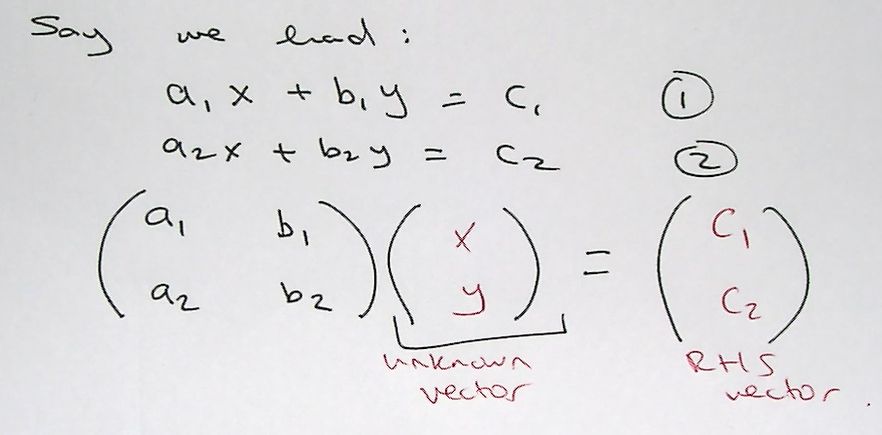 Say we had:
a₁x + b₁y = c₁ ①
a₂x + b₂y = c₂ ②
( a₁ b₁ ) ( x ) = ( c₁ )
( a₂ b₂ ) ( y ) ( c₂ )
unknown RHS
vector vector.